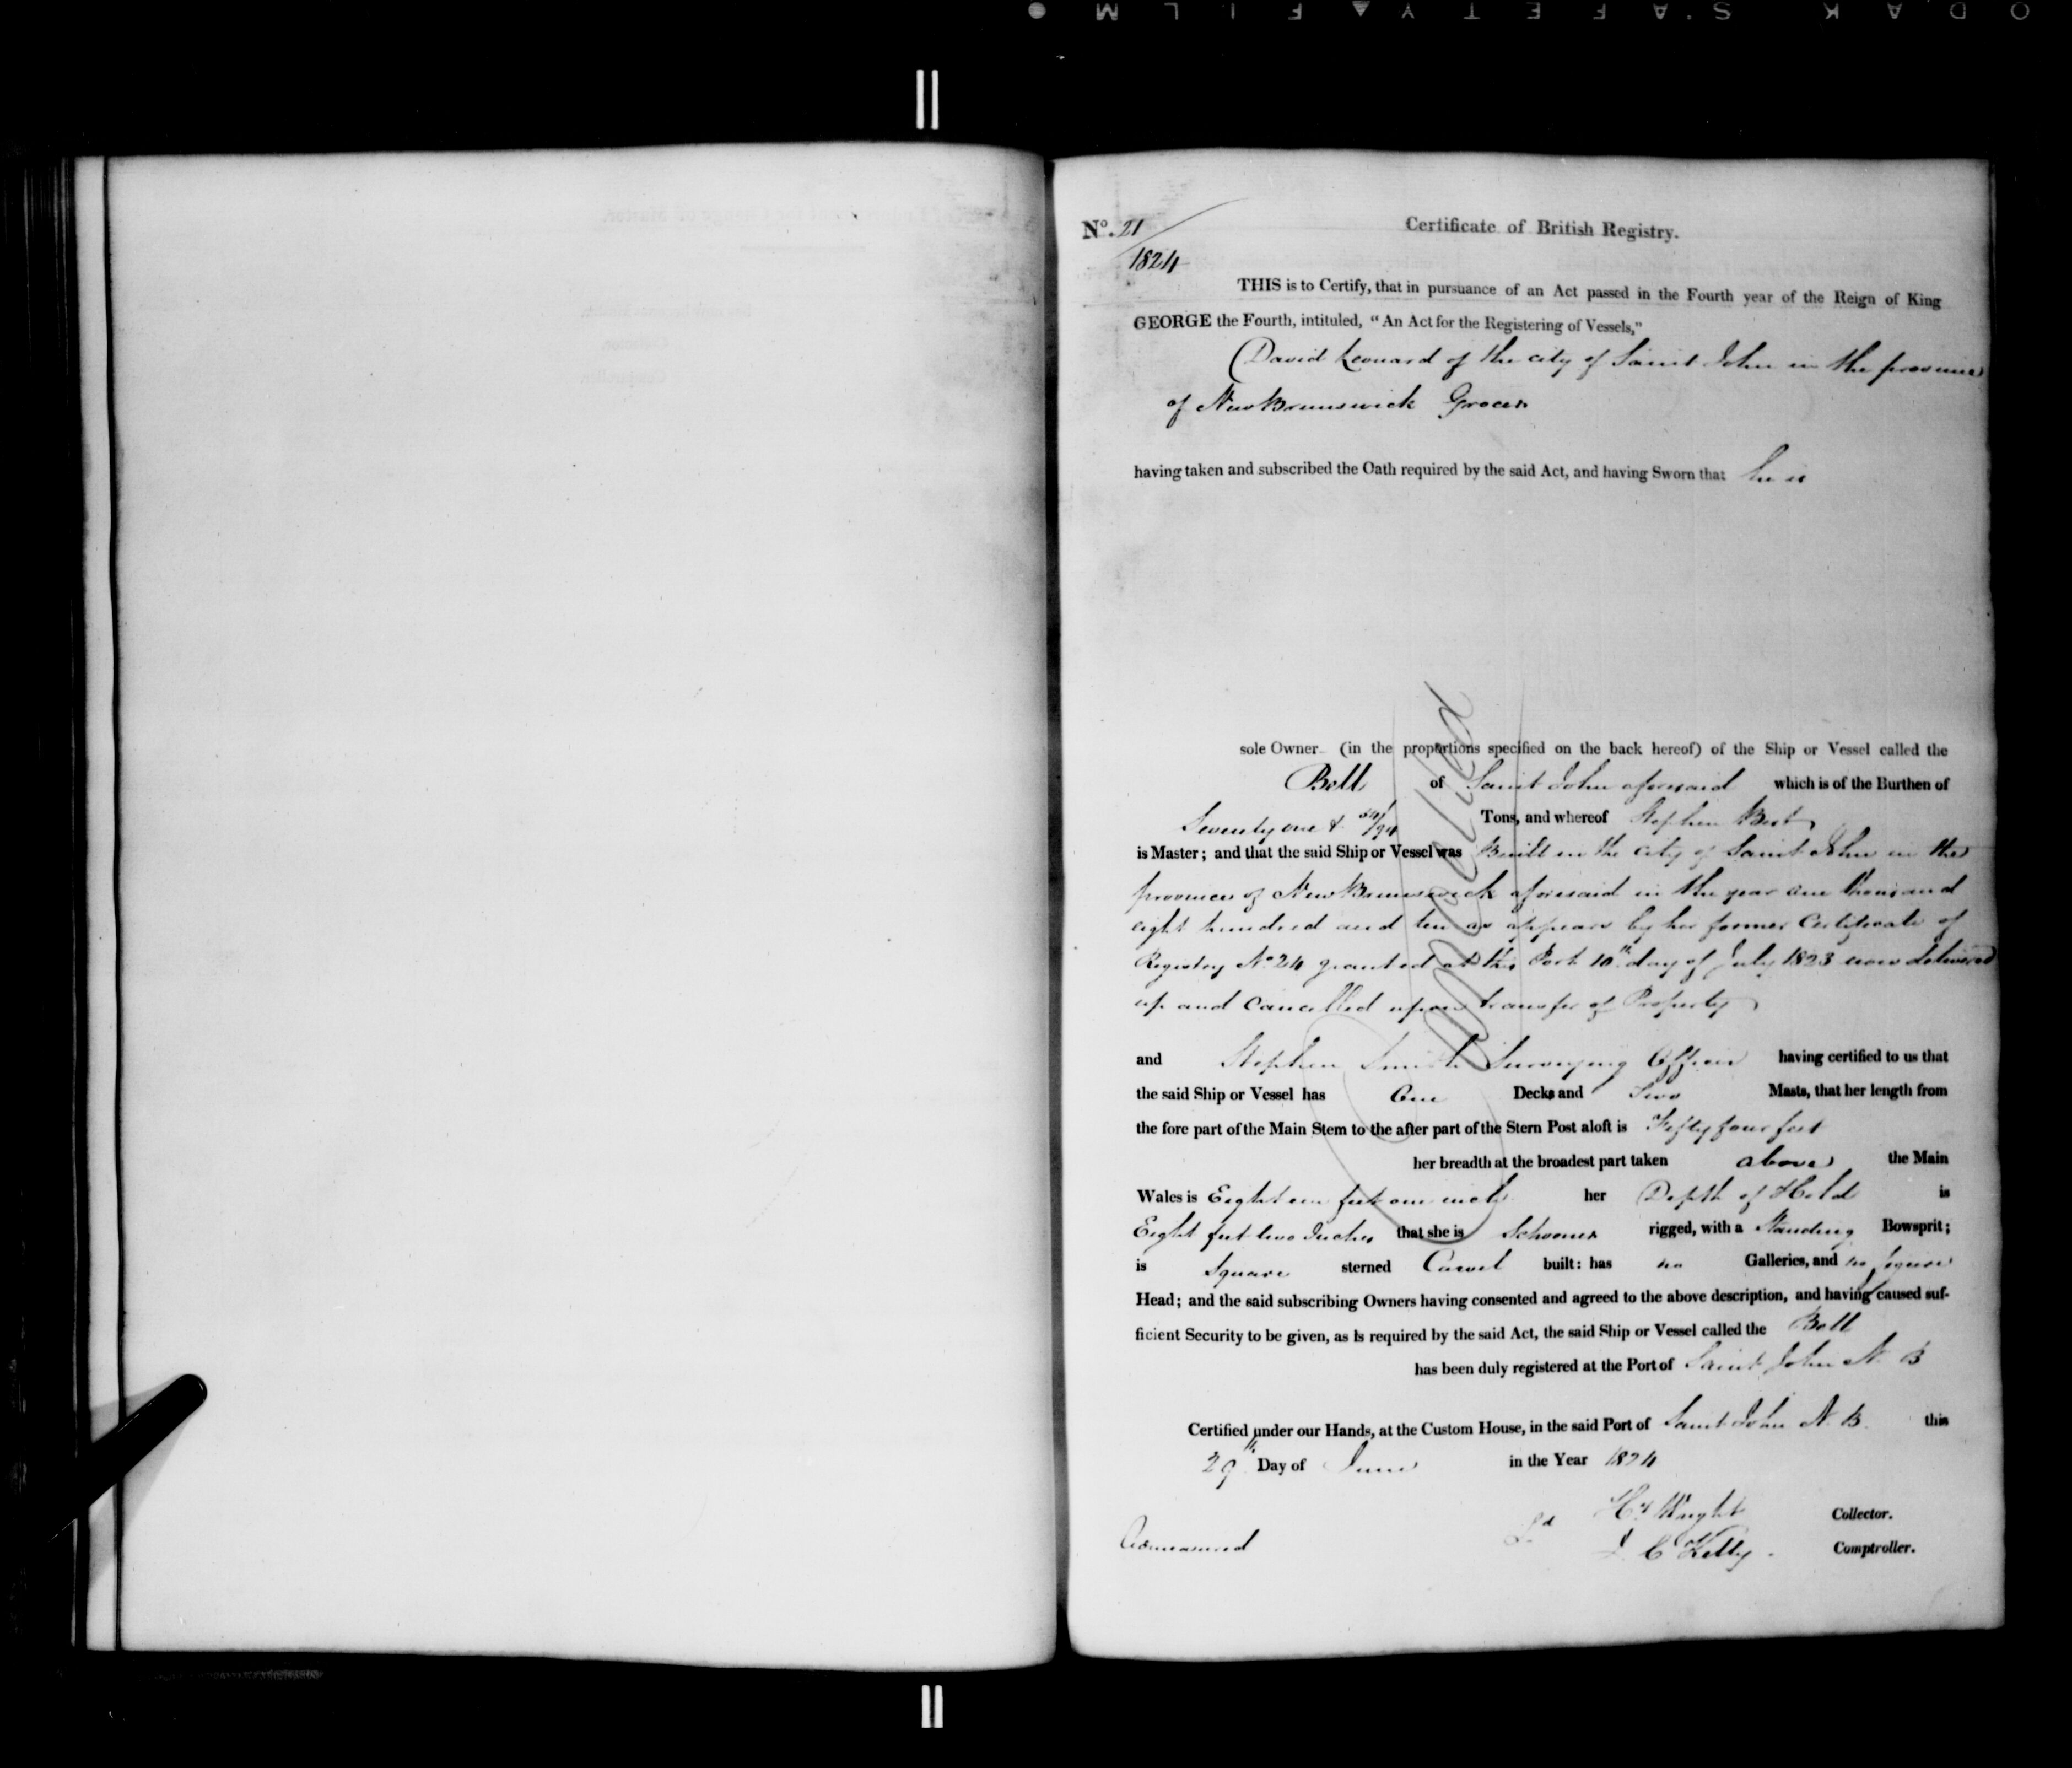 ODAK S'AFETY FILM
No. 21
1824
Certificate of British Registry.
THIS is to Certify, that in pursuance of an Act passed in the Fourth year of the Reign of King
GEORGE the Fourth, intituled, "An Act for the Registering of Vessels,"
David Leonard of the city of Saint John in the province
of New Brunswick Grocer
having taken and subscribed the Oath required by the said Act, and having Sworn that he is
sole Owner (in the proportions specified on the back hereof) of the Ship or Vessel called the
Bell of Saint John aforesaid which is of the Burthen of
Seventy one & 54/94 Tons, and whereof Stephen Best
is Master; and that the said Ship or Vessel was Built in the city of Saint John in the
province of New Brunswick aforesaid in the year one thousand
eight hundred and ten as appears by her former Certificate of
Registry No 24 granted at this Port 10th day of July 1823 now delivered
up and Cancelled upon transfer of Property
Cancelled
and Stephen Smith Surveying Officer having certified to us that
the said Ship or Vessel has One Decks and Two Masts, that her length from
the fore part of the Main Stem to the after part of the Stern Post aloft is Fifty four feet
her breadth at the broadest part taken above the Main
Wales is Eighteen feet one inch her Depth of Hold is
Eight feet two Inches that she is Schooner rigged, with a Standing Bowsprit;
is Square sterned Carvel built: has no Galleries, and no figure
Head; and the said subscribing Owners having consented and agreed to the above description, and having caused suf-
ficient Security to be given, as is required by the said Act, the said Ship or Vessel called the Bell
has been duly registered at the Port of Saint John N. B
Certified under our Hands, at the Custom House, in the said Port of Saint John N. B. this
29th Day of June in the Year 1824
Hy Wright Collector.
C Kelly. Comptroller.
Admeasured